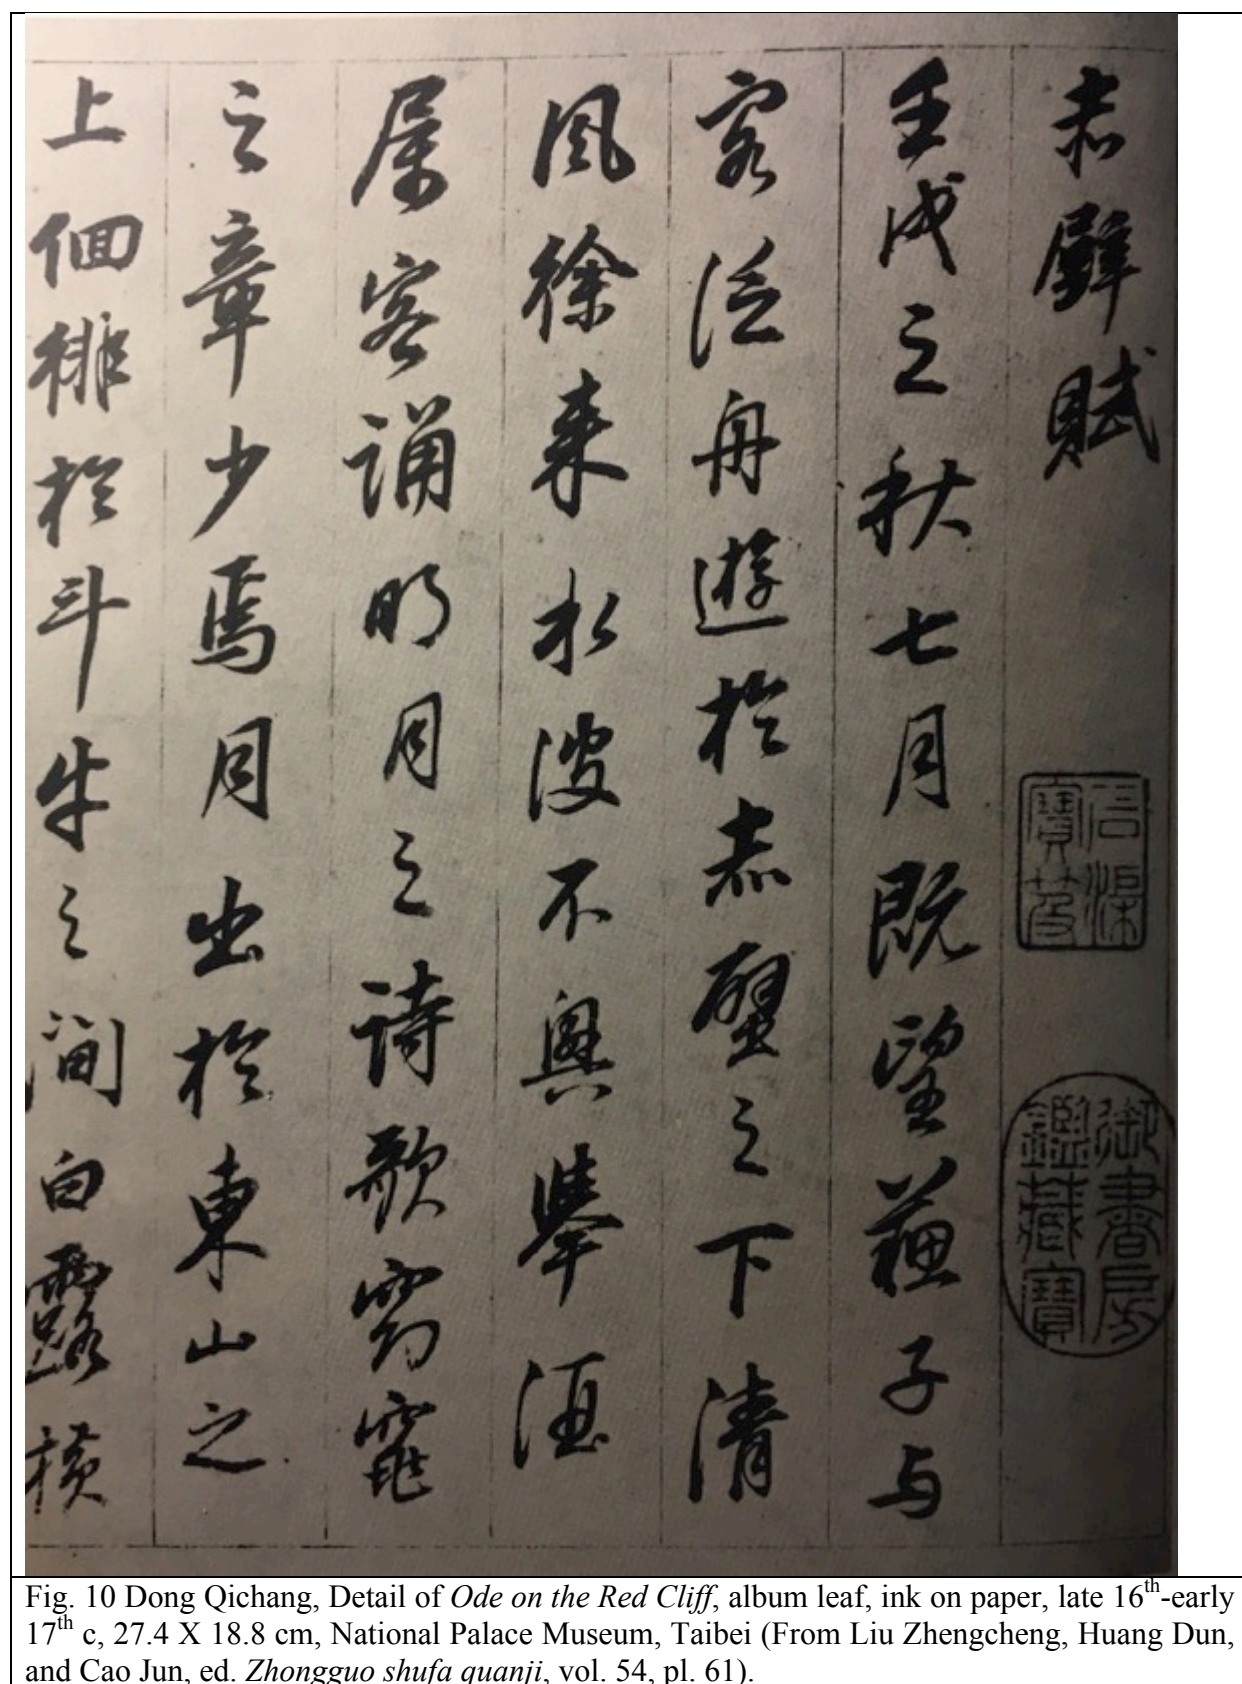 赤壁賦
壬戌之秋七月既望蘇子与
客泛舟遊於赤壁之下清
風徐来水波不興舉酒
属客誦明月之詩歌窈窕
之章少焉月出於東山之
上佪徘於斗牛之間白露橫
石渠
寶笈
御書房
鑑藏寶
Fig. 10 Dong Qichang, Detail of Ode on the Red Cliff, album leaf, ink on paper, late 16th-early
17th c, 27.4 X 18.8 cm, National Palace Museum, Taibei (From Liu Zhengcheng, Huang Dun,
and Cao Jun, ed. Zhongguo shufa quanji, vol. 54, pl. 61).